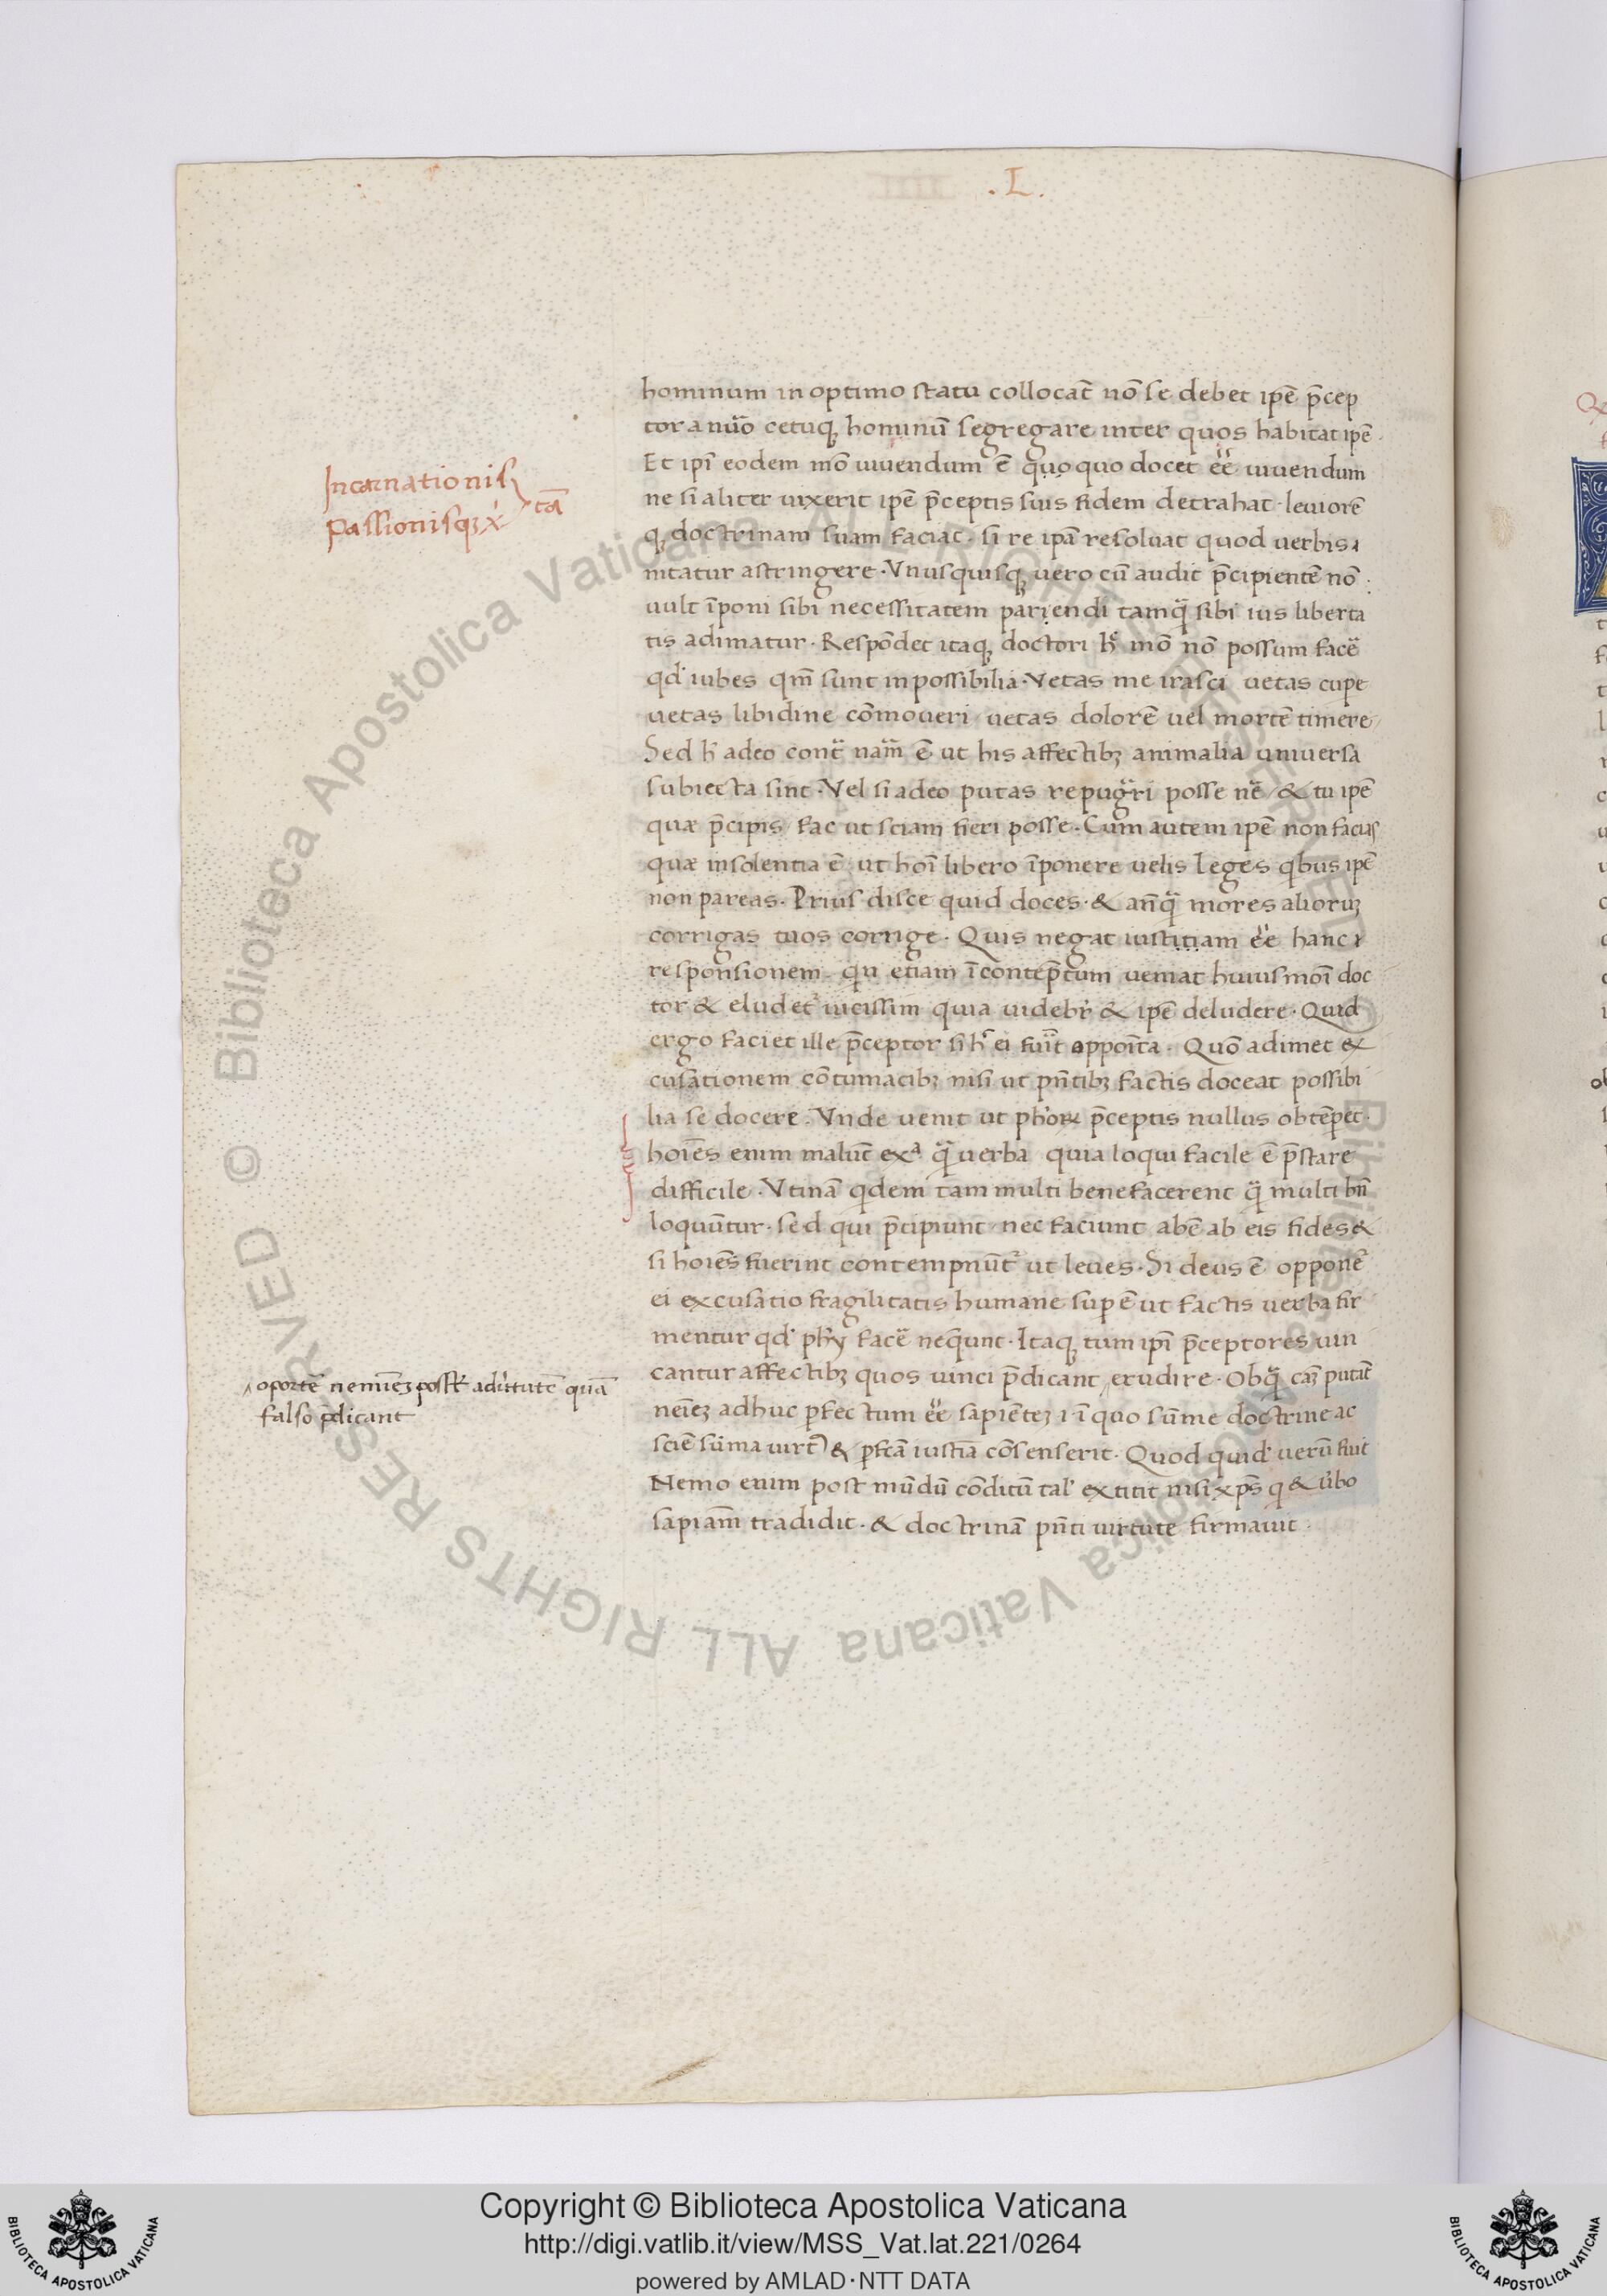 .L.
hominum in optimo statu collocat̄ nō se debet ip̄e p̄cep
tor a nūo cetuq; hominū segregare inter quos habitat ip̄e
Et ip̄i eodem mō uiuendum ē quo quo docet ēē uiuendum
Incarnationis
passionisq; x̄
cā
ne si aliter uixerit ip̄e p̄ceptis suis fidem detrahat · leuiorē
q; doctrinam suam faciat · si re ip̄a resoluat quod uerbis
nitatur astringere · Vnusquisq; uero cū audit p̄cipientē nō
uult īponi sibi necessitatem pariendi tamq̄ sibi ius liberta
tis adimatur · Respōdet itaq; doctori h̄ mō nō possum facē
qd' iubes qm̄ sunt inpossibilia · Vetas me irasci uetas cupe
uetas libidine cōmoueri uetas dolorē uel mortē timere
Sed h̄ adeo cont̄ nām ē ut his affectib; animalia uniuersa
subiecta sint · Vel si adeo putas repuḡri posse nē / & tu ip̄e
quæ p̄cipis / fac ut sciam fieri posse · Cum autem ip̄e non facias
quæ insolentia ē ut hoī libero īponere uelis leges qbus ip̄e
non pareas · Prius disce quid doces · & an̄q̄ mores alioruȝ
corrigas tuos corrige · Quis negat iustitiam ēē hanc
responsionem qn etiam ī contēp̄tum ueniat huiusmoī doc
tor & eludet' uicissim quia uidebr' & ip̄e deludere · Quid
ergo faciet ille p̄ceptor si h̄ ei fuīt opposita · Quō adimet ex
cusationem cōtumacib; nisi ut pn̄tib; factis doceat possibi
lia se docere · Vnde uenit ut ph'orꝝ p̄ceptis nullus obtēpet ·
hoīes enim malūt exª q̄ uerba quia loqui facile ē p̄stare
difficile · Vtinā qdem tam multi benefacerent q̄ multi bn̄
loquūtur · sed qui p̄cipiunt nec faciunt abē ab eis fides &
si hoīes fuerint contempnūt' ut leues · Si deus ē opponē'
ei excusatio fragilitatis humane sup ē ut factis uerba fir
mentur qd' ph'y facē neq̄unt · Itaq; tum ip̄i p̄ceptores uin
cantur affectib; quos uinci p̄dicant ⸝ erudire · Ob q̄ caȝ putāt
⸝ oportē neminēȝ possūt ad uirtutē quā
falso p̄dicant
neīeȝ adhuc pfectum ēē sapiēteȝ · i · ī quo sūme doctrine ac
sciē sūma uirt' & pfcā iustiā cōsenserit · Quod quid' uerū fuit
Nemo enim post mūdū cōditū tal' extitit nisi xp̄s q & ūbo
sapiam̄ tradidit · & doctrinā pn̄ti uirtute firmauit ·
© Biblioteca Apostolica Vaticana ALL RIGHTS RESERVED
Copyright © Biblioteca Apostolica Vaticana
http://digi.vatlib.it/view/MSS_Vat.lat.221/0264
powered by AMLAD · NTT DATA
BIBLIOTECA APOSTOLICA VATICANA
BIBLIOTECA APOSTOLICA VATICANA